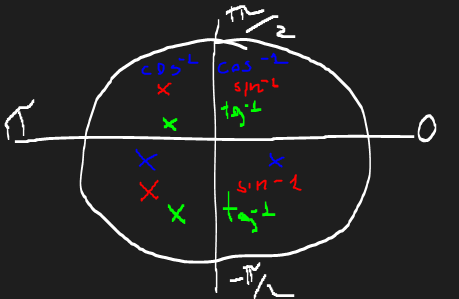 π/2
cos⁻¹ cos⁻¹
x sin⁻¹
x tg⁻¹
π 0
x x
x sin⁻¹
x tg⁻¹
-π/2